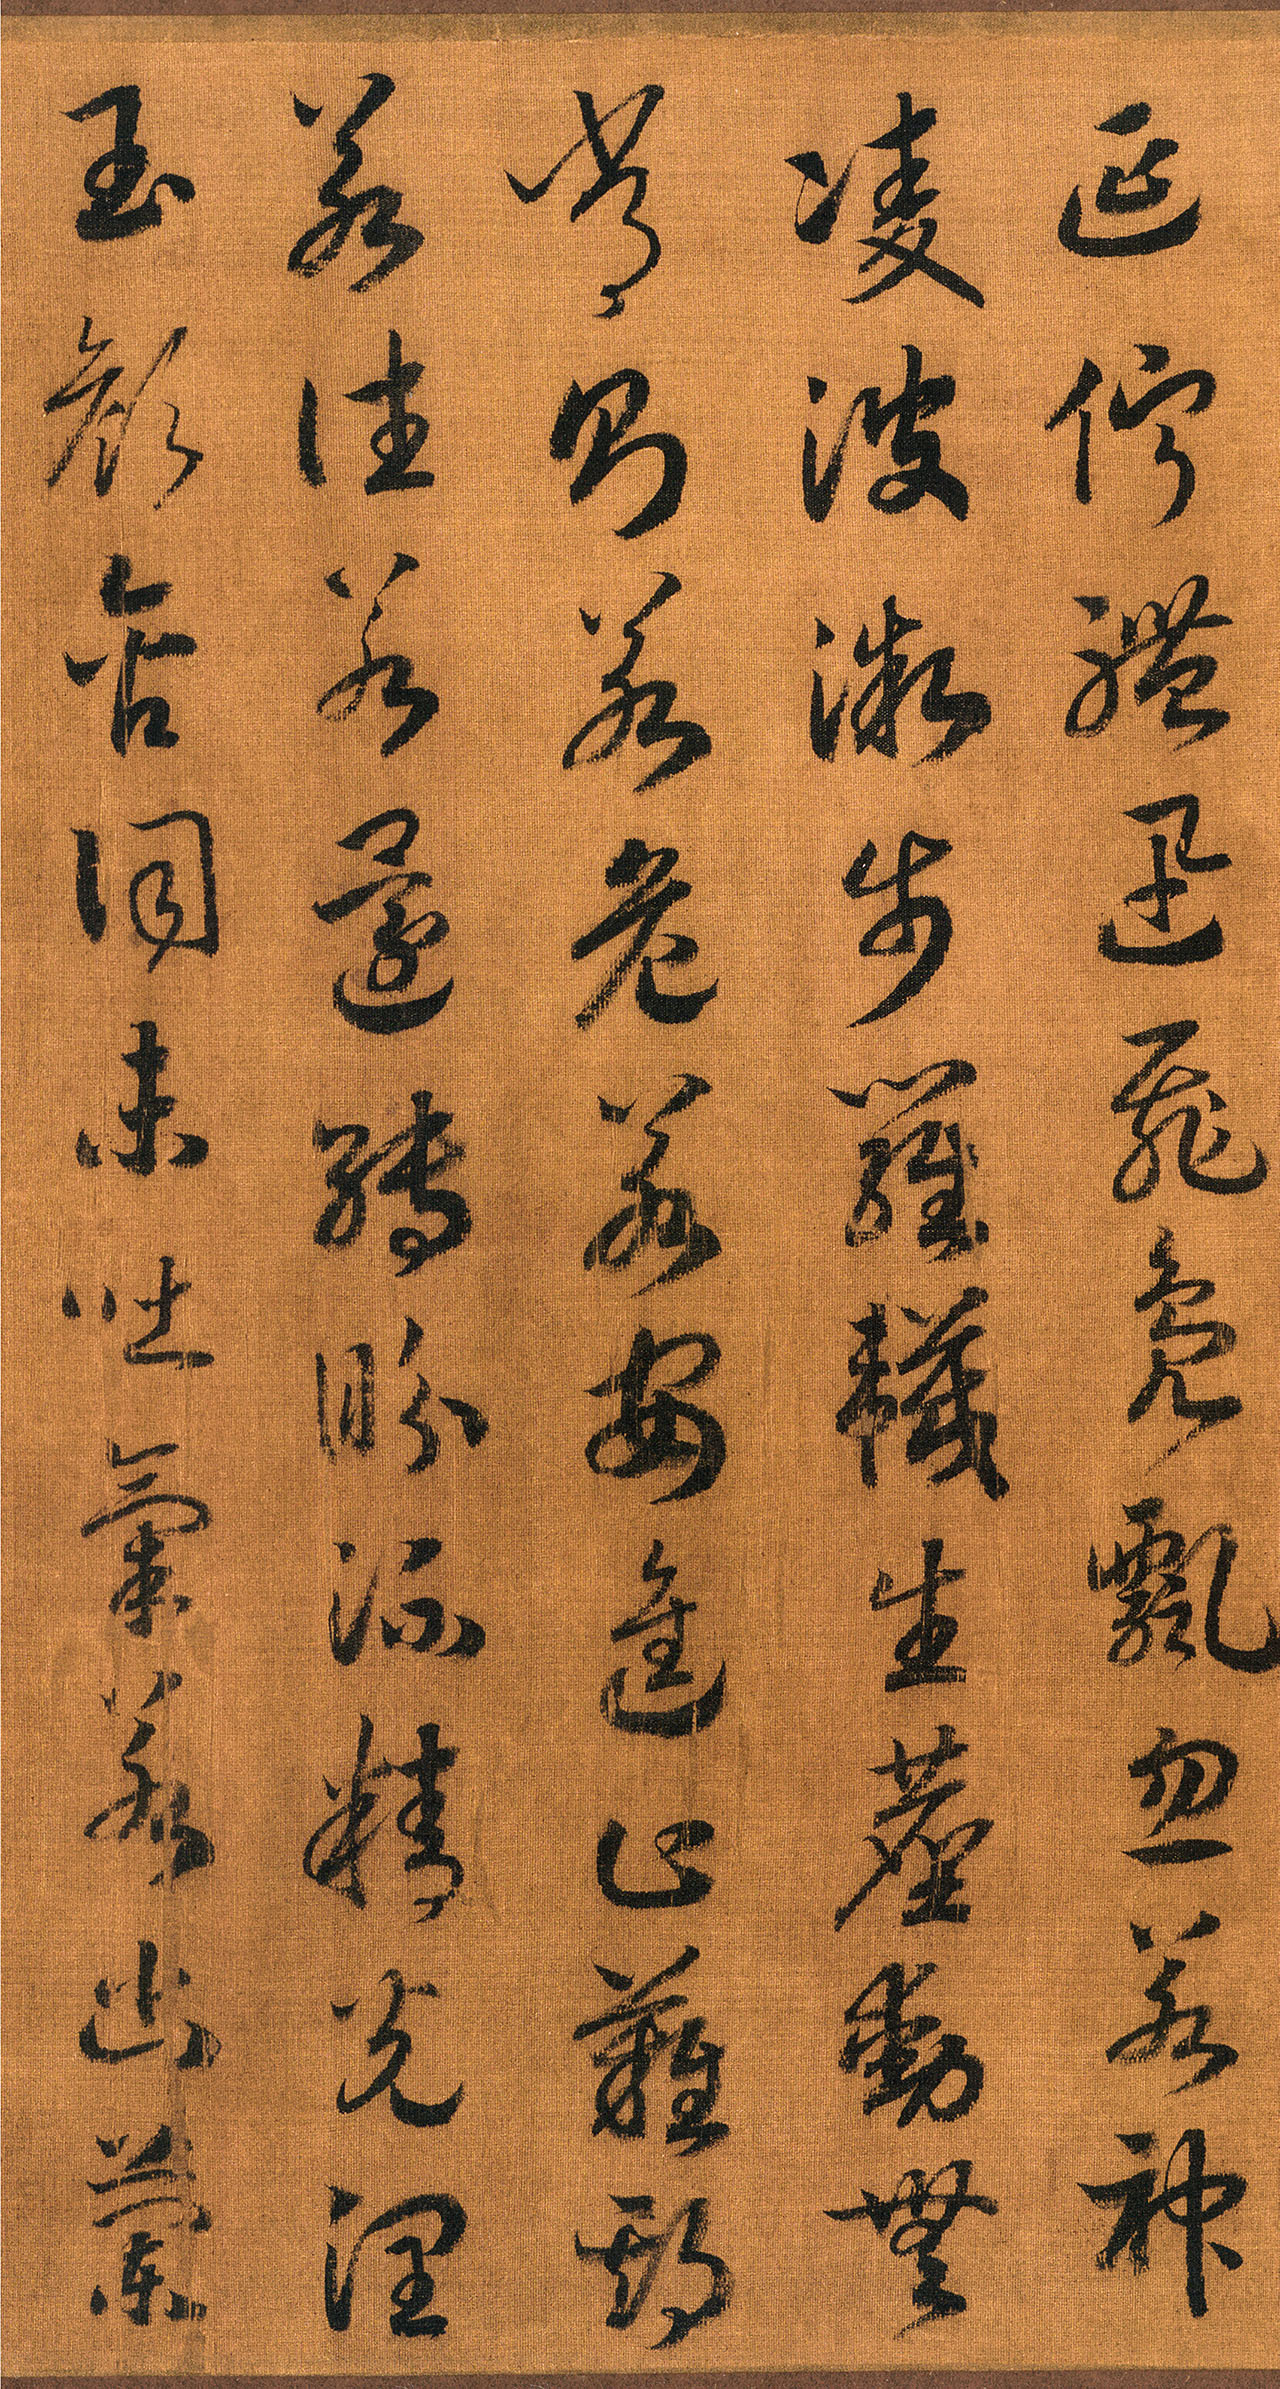 延佇體迅飛鳧飄忽若神
凌波微步羅襪生塵動無
常則若危若安進止難期
若往若還轉眄流精光潤
玉顏含詞未吐氣若幽蘭